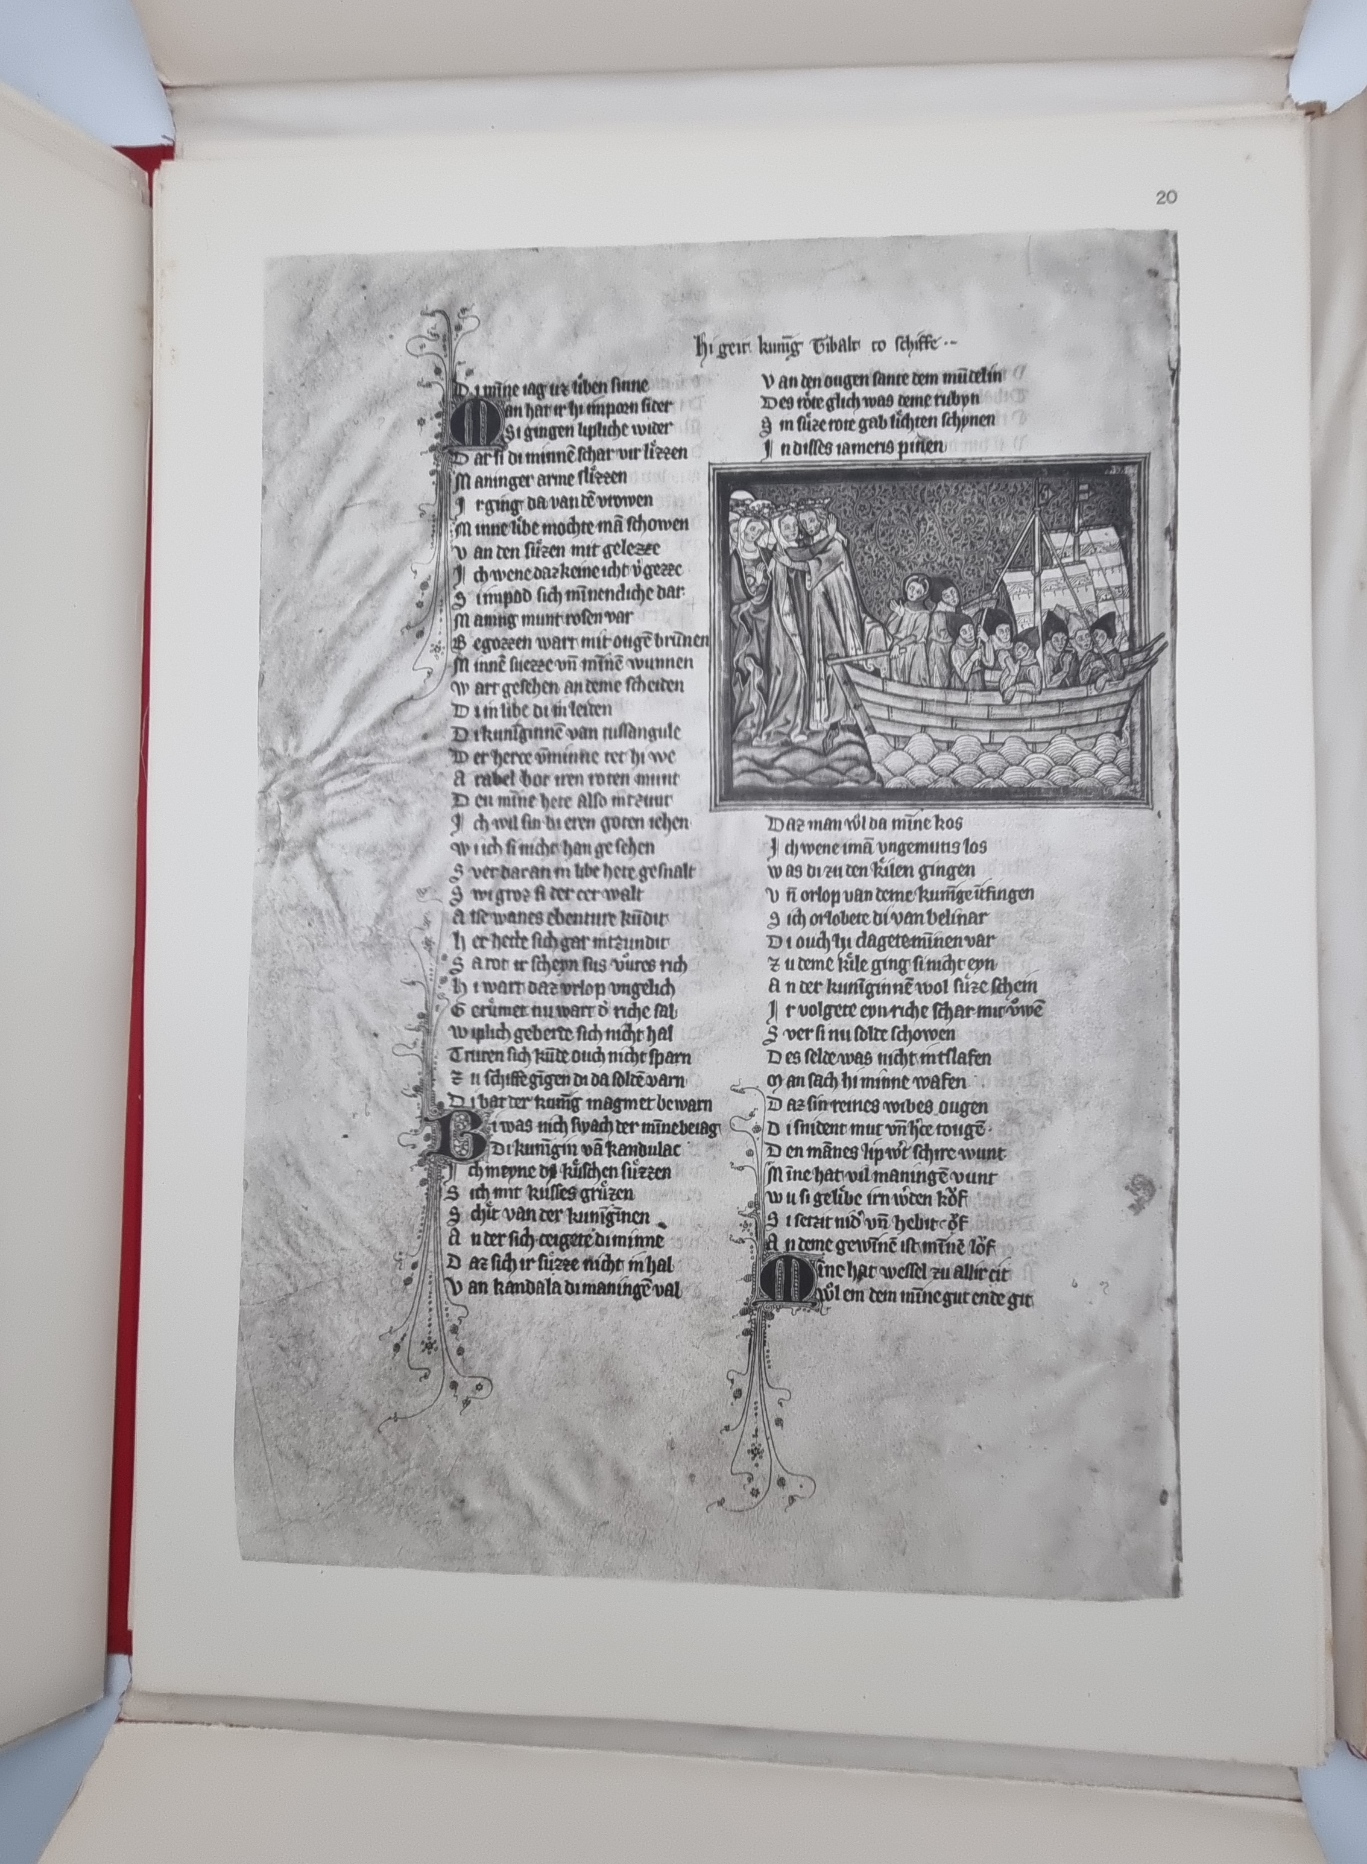 20
hi geit kunīg Tibalt to schiffe
D i mīne iag uz liben sinne
M an hat ir hi imporn sider
S i gingen lipliche wider
D ar si di minnē schar vir lizzen
M aninger arme slizzen
J r ging da van dē vrowen
M inne libe mochte mā schowen
V an den sůzen mit gelezze
J ch wene daz keine icht v̓gezze
S i mpod sich mīnencliche dar
M aning munt rosen var
B egozzen wart mit ougē brūnen
M innē suezze vn̄ mīnē wunnen
W art gesehen an deme scheiden
D i in libe di in leiden
D i kunīginnē van russangule
D er herce v̄minne tet hi we
A rabel bot iren roten munt
D en mīne hete also intzunt
J ch wil sin di eren goten iehen
W i ich si nicht han gesehen
S wer daran in libe hete gestalt
S wi groz si der cer walt
A lse wanes ebenture kūdit
h er hette sich gar intzundit
S a rot ir scheyn sus vůres rich
h i wart daz vrlop vngelich
G erůmet nu wart d̓ riche sal
W iplich geberte sich nicht hal
T ruren sich kūde ouch nicht sparn
Z u schiffe gīgen di da soldē varn
D i bat der kunīg magmet bewarn
B i was nich siyach der mīne beiag
D i kunīgin vā kandulac
J ch meyne di kůschen sůzzen
S ich mit kusses grůzen
S chīt van der kunīgīnen
A n der sich ceigete di minne
D az sich ir sůzze nicht in hal
V an kandala di maningē val
V an den ougen sante dem mūdelin
D es rote glich was deme rubyn
S in sůze rote gab lichten schynen
J n disses iameris pinen
D az man wol da mīne kos
J ch wene imā vngemutis los
W as di zu den kilen gingen
V n̄ orlop van deme kunīge ītfingen
S ich orlobete di van belinar
D i ouch hi clagete mīnen var
Z u deme kile ging si nicht eyn
A n der kunīginnē wol sůze schein
J r volgete eyn riche schar mit v̊wē
S wer si nu solde schowen
D es selde was nicht intslafen
M an sach hi minne wafen
D az sin reines wibes ougen
D i snident mut vn̄ h̓ce tougē
D en mānes lip w̓t schire wunt
M īne hat vil maningē vunt
W u si gelibe irn w̓den kŏf
S i setzit nid̓ vn̄ hebit ŏf
A n deme gewīnē ist mīnē lŏf
M īne hat wessel zu allir cit
W ol em dem mīne gut ende git